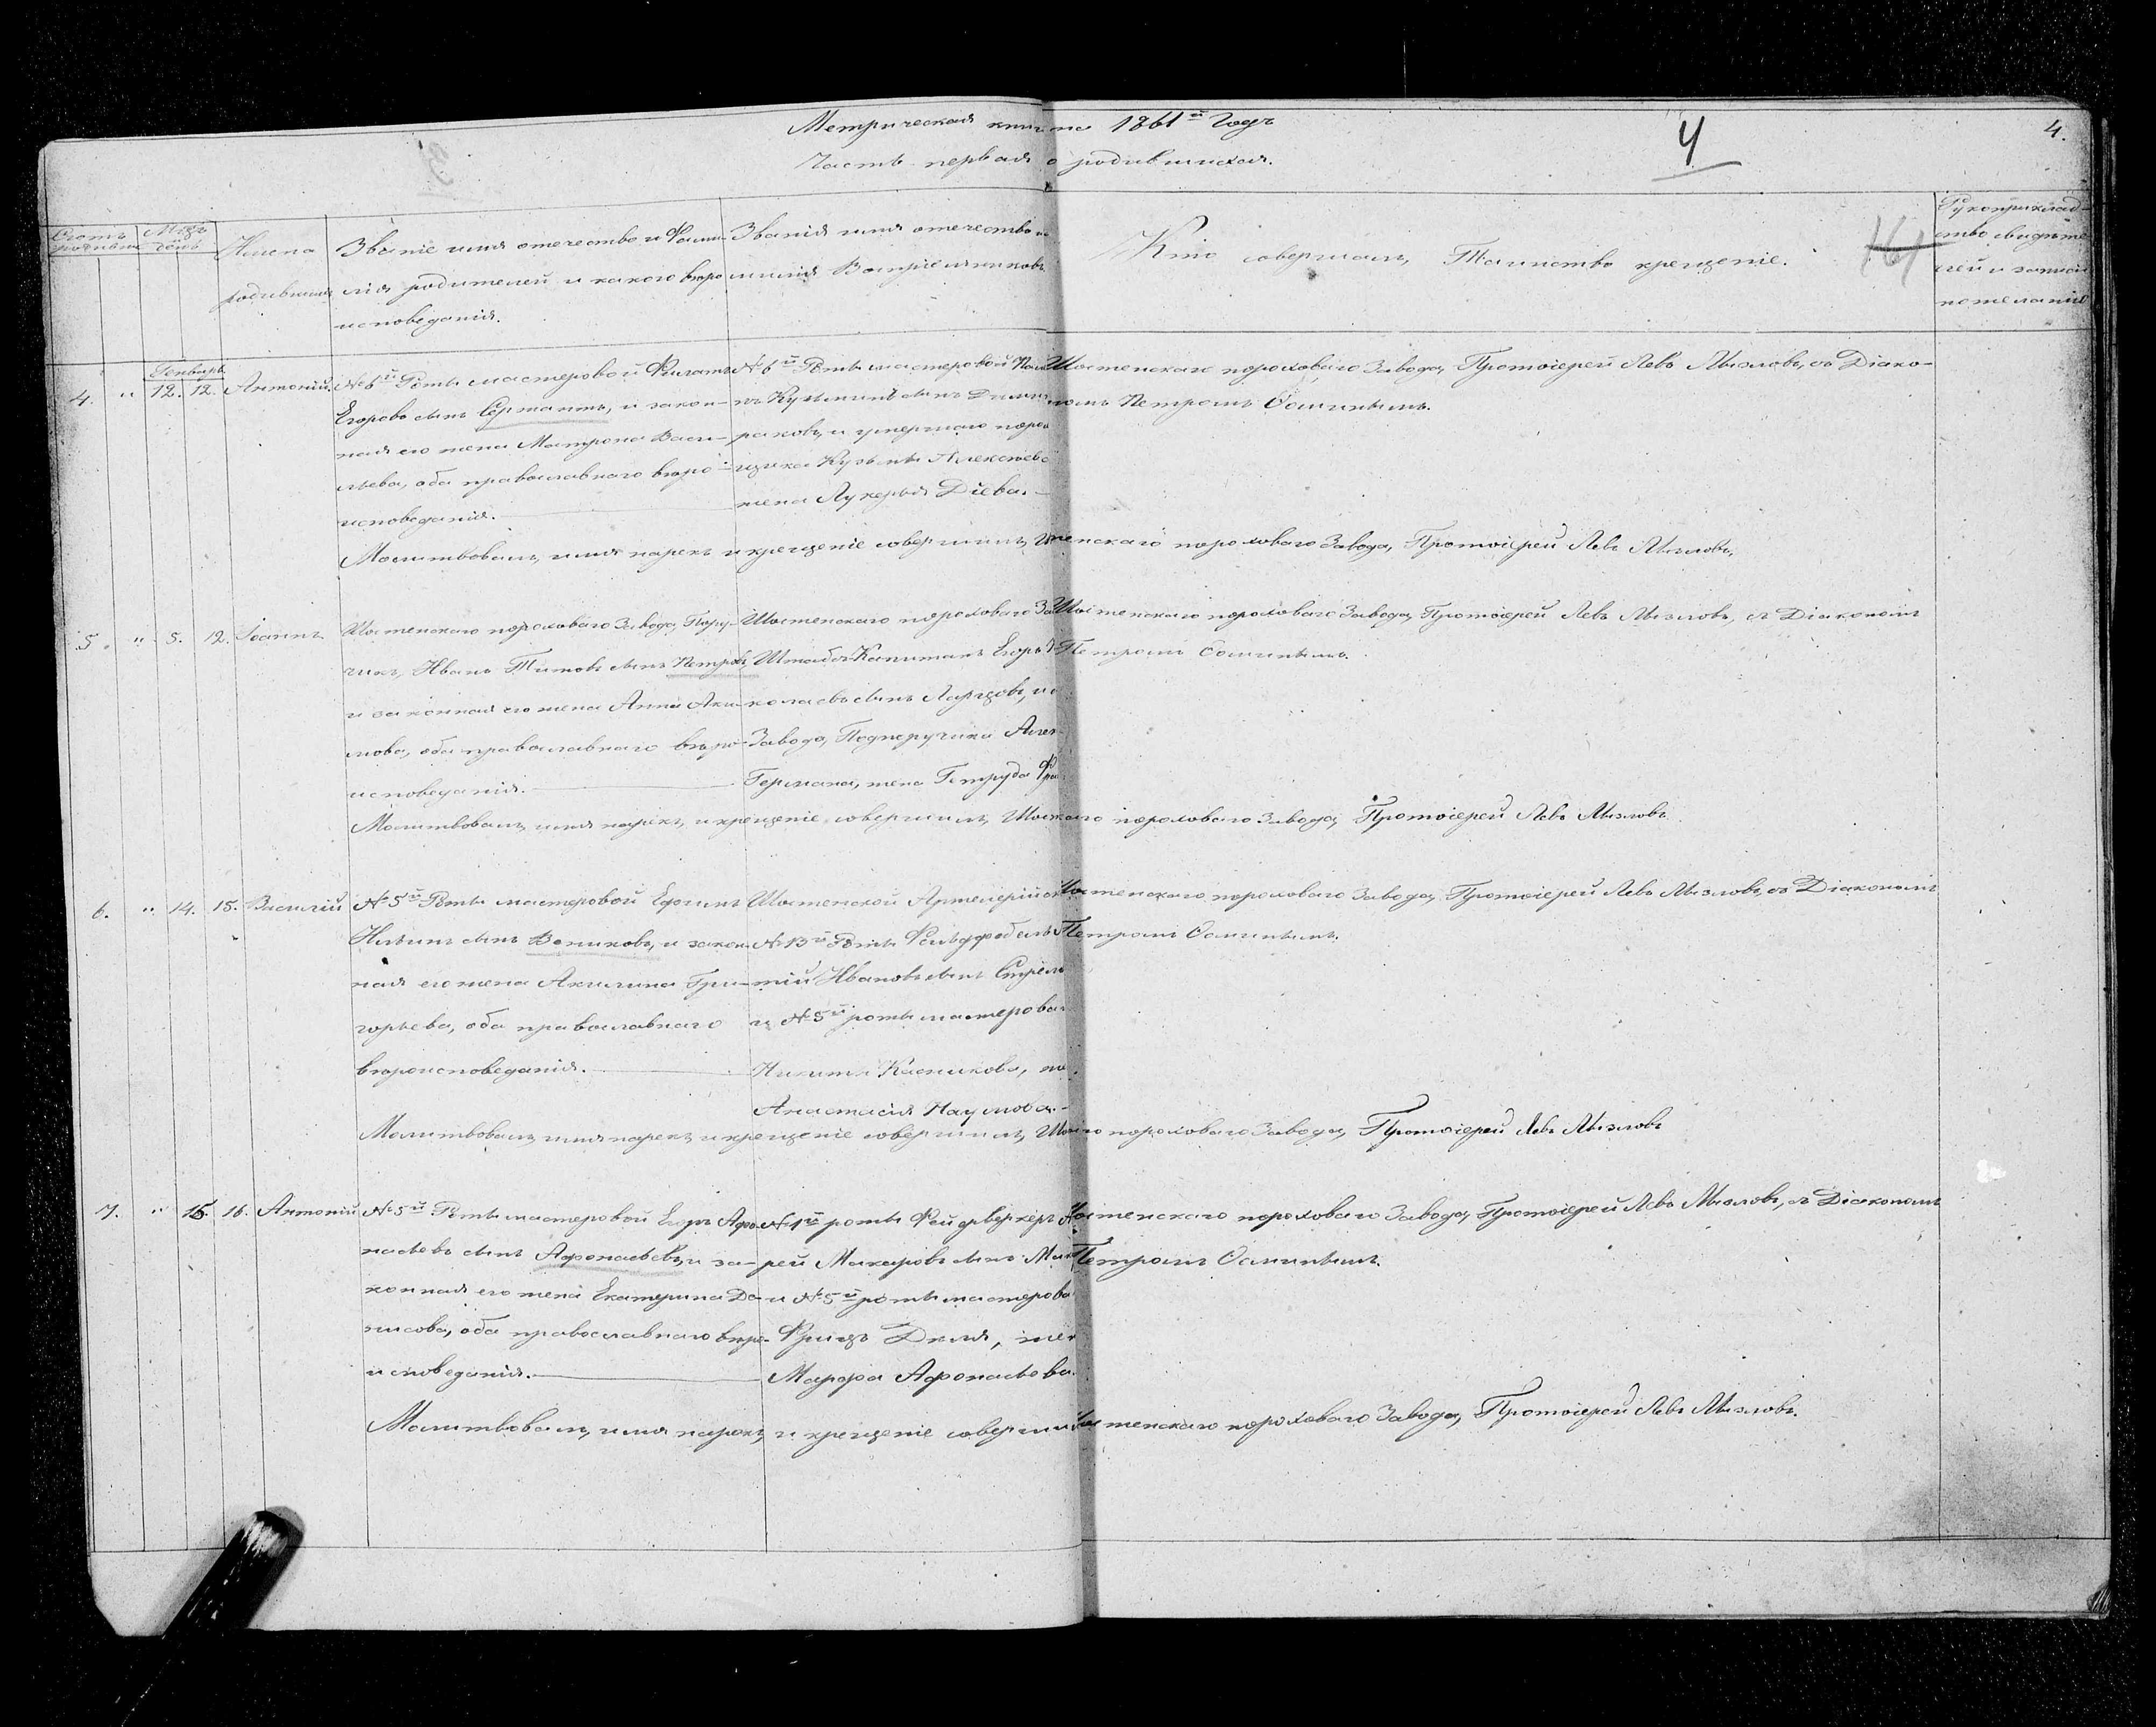 Метрическая книга на 1861й Годъ
Часть первая о родившихся.
4
4.
Счетъ родившихся
Мѣцъ день
Имена родившихся
Званіе имя отечество и Фами-
лія родителей и какого вѣро
исповеданія.
Званія имя отечество и
милія Воспріемниковъ.
Кто совершалъ Таинство крещеніе.
161
Рукоприклад-
ство свидѣте
лей и записи
по желанію
Генварь
4. " 12. 12. Антоній.
№ 6й Роты мастеровой Филатъ
Егоровъ сынъ Сержантъ, и закон-
ная его жена Матрона Васи-
льева, оба православнаго вѣро-
исповеданія.
№ 6й Роты мастеровой
Кузьминъ сынъ
раковъ, и умершаго
Кузьмы Алексѣева
жена Лукерья Діева.
Шостенскаго пороховаго Завода, Протоіерей Левъ Мызловъ, съ Діако-
номъ Петромъ Осминымъ.
Молитвовалъ, имя нарекъ и крещеніе совершилъ, тенскаго пороховаго Завода, Протоіерей Левъ Мызловъ,
5. " 5. 12. Іоаннъ
Шостенскаго пороховаго Завода, Пору-
чикъ, Иванъ Титовъ сынъ Петровъ,
и законная его жена Анна Аки-
мова, оба православнаго вѣро-
исповеданія.
Шостенскаго пороховаго За
Штабсъ-Капитанъ Егоръ
колаевъ сынъ Ларцовъ, и
Завода, Подпоручика Алек
Германа, жена Гетруда
Шостенскаго пороховаго Завода, Протоіерей Левъ Мызловъ, съ Діакономъ
Петромъ Осминымъ.
Молитвовалъ, имя нарекъ, и крещеніе совершилъ, Шос каго пороховаго Завода, Протоіерей Левъ Мызловъ
6. " 14. 15. Василій
№ 5й Роты мастеровой Ефимъ
Ильинъ сынъ Вениковъ, и закон-
ная его жена Акилина Гри-
горьева, оба православнаго
вѣроисповеданія.
Шостенской Артелерійск
№ 13й Роты
тій Ивановъ сынъ Стрел
и № 5й роты мастерова
Никиты Касникова,
Анастасія Наумова.
Шостенскаго пороховаго Завода, Протоіерей Левъ Мызловъ, съ Діакономъ
Петромъ Осминымъ.
Молитвовалъ, имя нарекъ, и крещеніе совершилъ, Шос го пороховаго Завода, Протоіерей Левъ Мызловъ
7. " 15. 16. Антоній
№ 5й Роты мастеровой Егоръ Афо
насьевъ сынъ Афонасьевъ, и за-
конная его жена Екатерина Де-
нисова, оба православнаго вѣро-
исповеданія.
№ 1й роты Фейерверкеръ
рей Макаровъ сынъ Мак
и № 5й роты мастерова
Фрицъ Деля, жен
Марфа Афонасьева.
Шостенскаго пороховаго Завода, Протоіерей Левъ Мызловъ, съ Діакономъ
Петромъ Осминымъ.
Молитвовалъ, имя нарекъ, и крещеніе соверши Шостенскаго пороховаго Завода, Протоіерей Левъ Мызловъ.